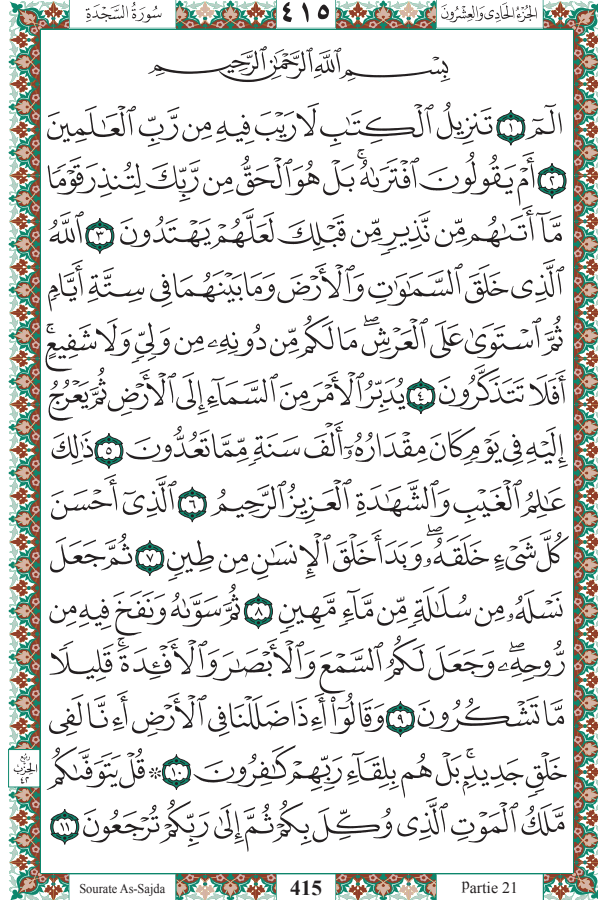 سُورَةُ السَّجْدَةِ ٤١٥ الجُزْءُ الحَادِي وَالعِشْرُونَ
بِسْمِ ٱللَّهِ ٱلرَّحْمَٰنِ ٱلرَّحِيمِ
الٓمٓ ١ تَنزِيلُ ٱلْكِتَٰبِ لَا رَيْبَ فِيهِ مِن رَّبِّ ٱلْعَٰلَمِينَ
٢ أَمْ يَقُولُونَ ٱفْتَرَىٰهُ ۚ بَلْ هُوَ ٱلْحَقُّ مِن رَّبِّكَ لِتُنذِرَ قَوْمًا
مَّآ أَتَىٰهُم مِّن نَّذِيرٍ مِّن قَبْلِكَ لَعَلَّهُمْ يَهْتَدُونَ ٣ ٱللَّهُ
ٱلَّذِى خَلَقَ ٱلسَّمَٰوَٰتِ وَٱلْأَرْضَ وَمَا بَيْنَهُمَا فِى سِتَّةِ أَيَّامٍ
ثُمَّ ٱسْتَوَىٰ عَلَى ٱلْعَرْشِ ۖ مَا لَكُم مِّن دُونِهِۦ مِن وَلِىٍّ وَلَا شَفِيعٍ ۚ
أَفَلَا تَتَذَكَّرُونَ ٤ يُدَبِّرُ ٱلْأَمْرَ مِنَ ٱلسَّمَآءِ إِلَى ٱلْأَرْضِ ثُمَّ يَعْرُجُ
إِلَيْهِ فِى يَوْمٍ كَانَ مِقْدَارُهُۥٓ أَلْفَ سَنَةٍ مِّمَّا تَعُدُّونَ ٥ ذَٰلِكَ
عَٰلِمُ ٱلْغَيْبِ وَٱلشَّهَٰدَةِ ٱلْعَزِيزُ ٱلرَّحِيمُ ٦ ٱلَّذِىٓ أَحْسَنَ
كُلَّ شَىْءٍ خَلَقَهُۥ ۖ وَبَدَأَ خَلْقَ ٱلْإِنسَٰنِ مِن طِينٍ ٧ ثُمَّ جَعَلَ
نَسْلَهُۥ مِن سُلَٰلَةٍ مِّن مَّآءٍ مَّهِينٍ ٨ ثُمَّ سَوَّىٰهُ وَنَفَخَ فِيهِ مِن
رُّوحِهِۦ ۖ وَجَعَلَ لَكُمُ ٱلسَّمْعَ وَٱلْأَبْصَٰرَ وَٱلْأَفْـِٔدَةَ ۚ قَلِيلًا
مَّا تَشْكُرُونَ ٩ وَقَالُوٓا۟ أَءِذَا ضَلَلْنَا فِى ٱلْأَرْضِ أَءِنَّا لَفِى
خَلْقٍ جَدِيدٍۭ ۚ بَلْ هُم بِلِقَآءِ رَبِّهِمْ كَٰفِرُونَ ١٠ ۞ قُلْ يَتَوَفَّىٰكُم
رُبْعُ الحِزْبِ ٤٢
مَّلَكُ ٱلْمَوْتِ ٱلَّذِى وُكِّلَ بِكُمْ ثُمَّ إِلَىٰ رَبِّكُمْ تُرْجَعُونَ ١١
Sourate As-Sajda 415 Partie 21